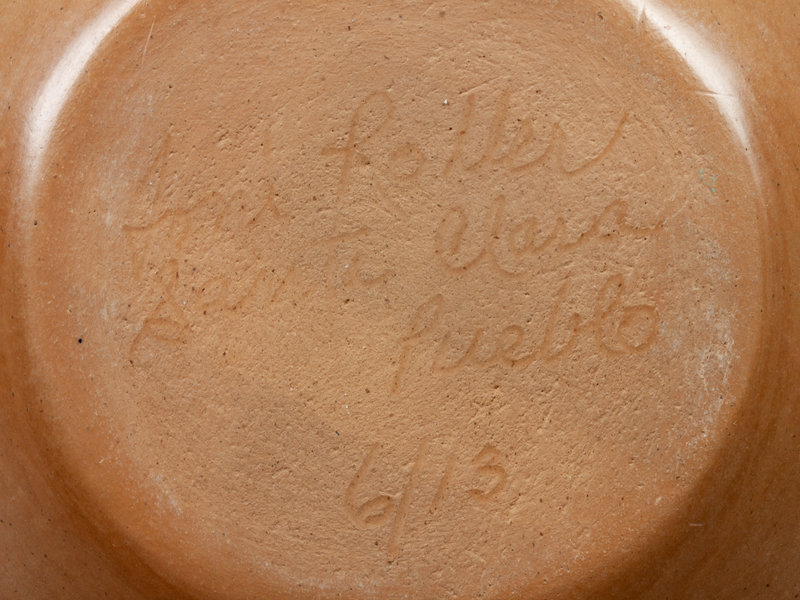 Toni Roller
Santa Clara
Pueblo
6/13